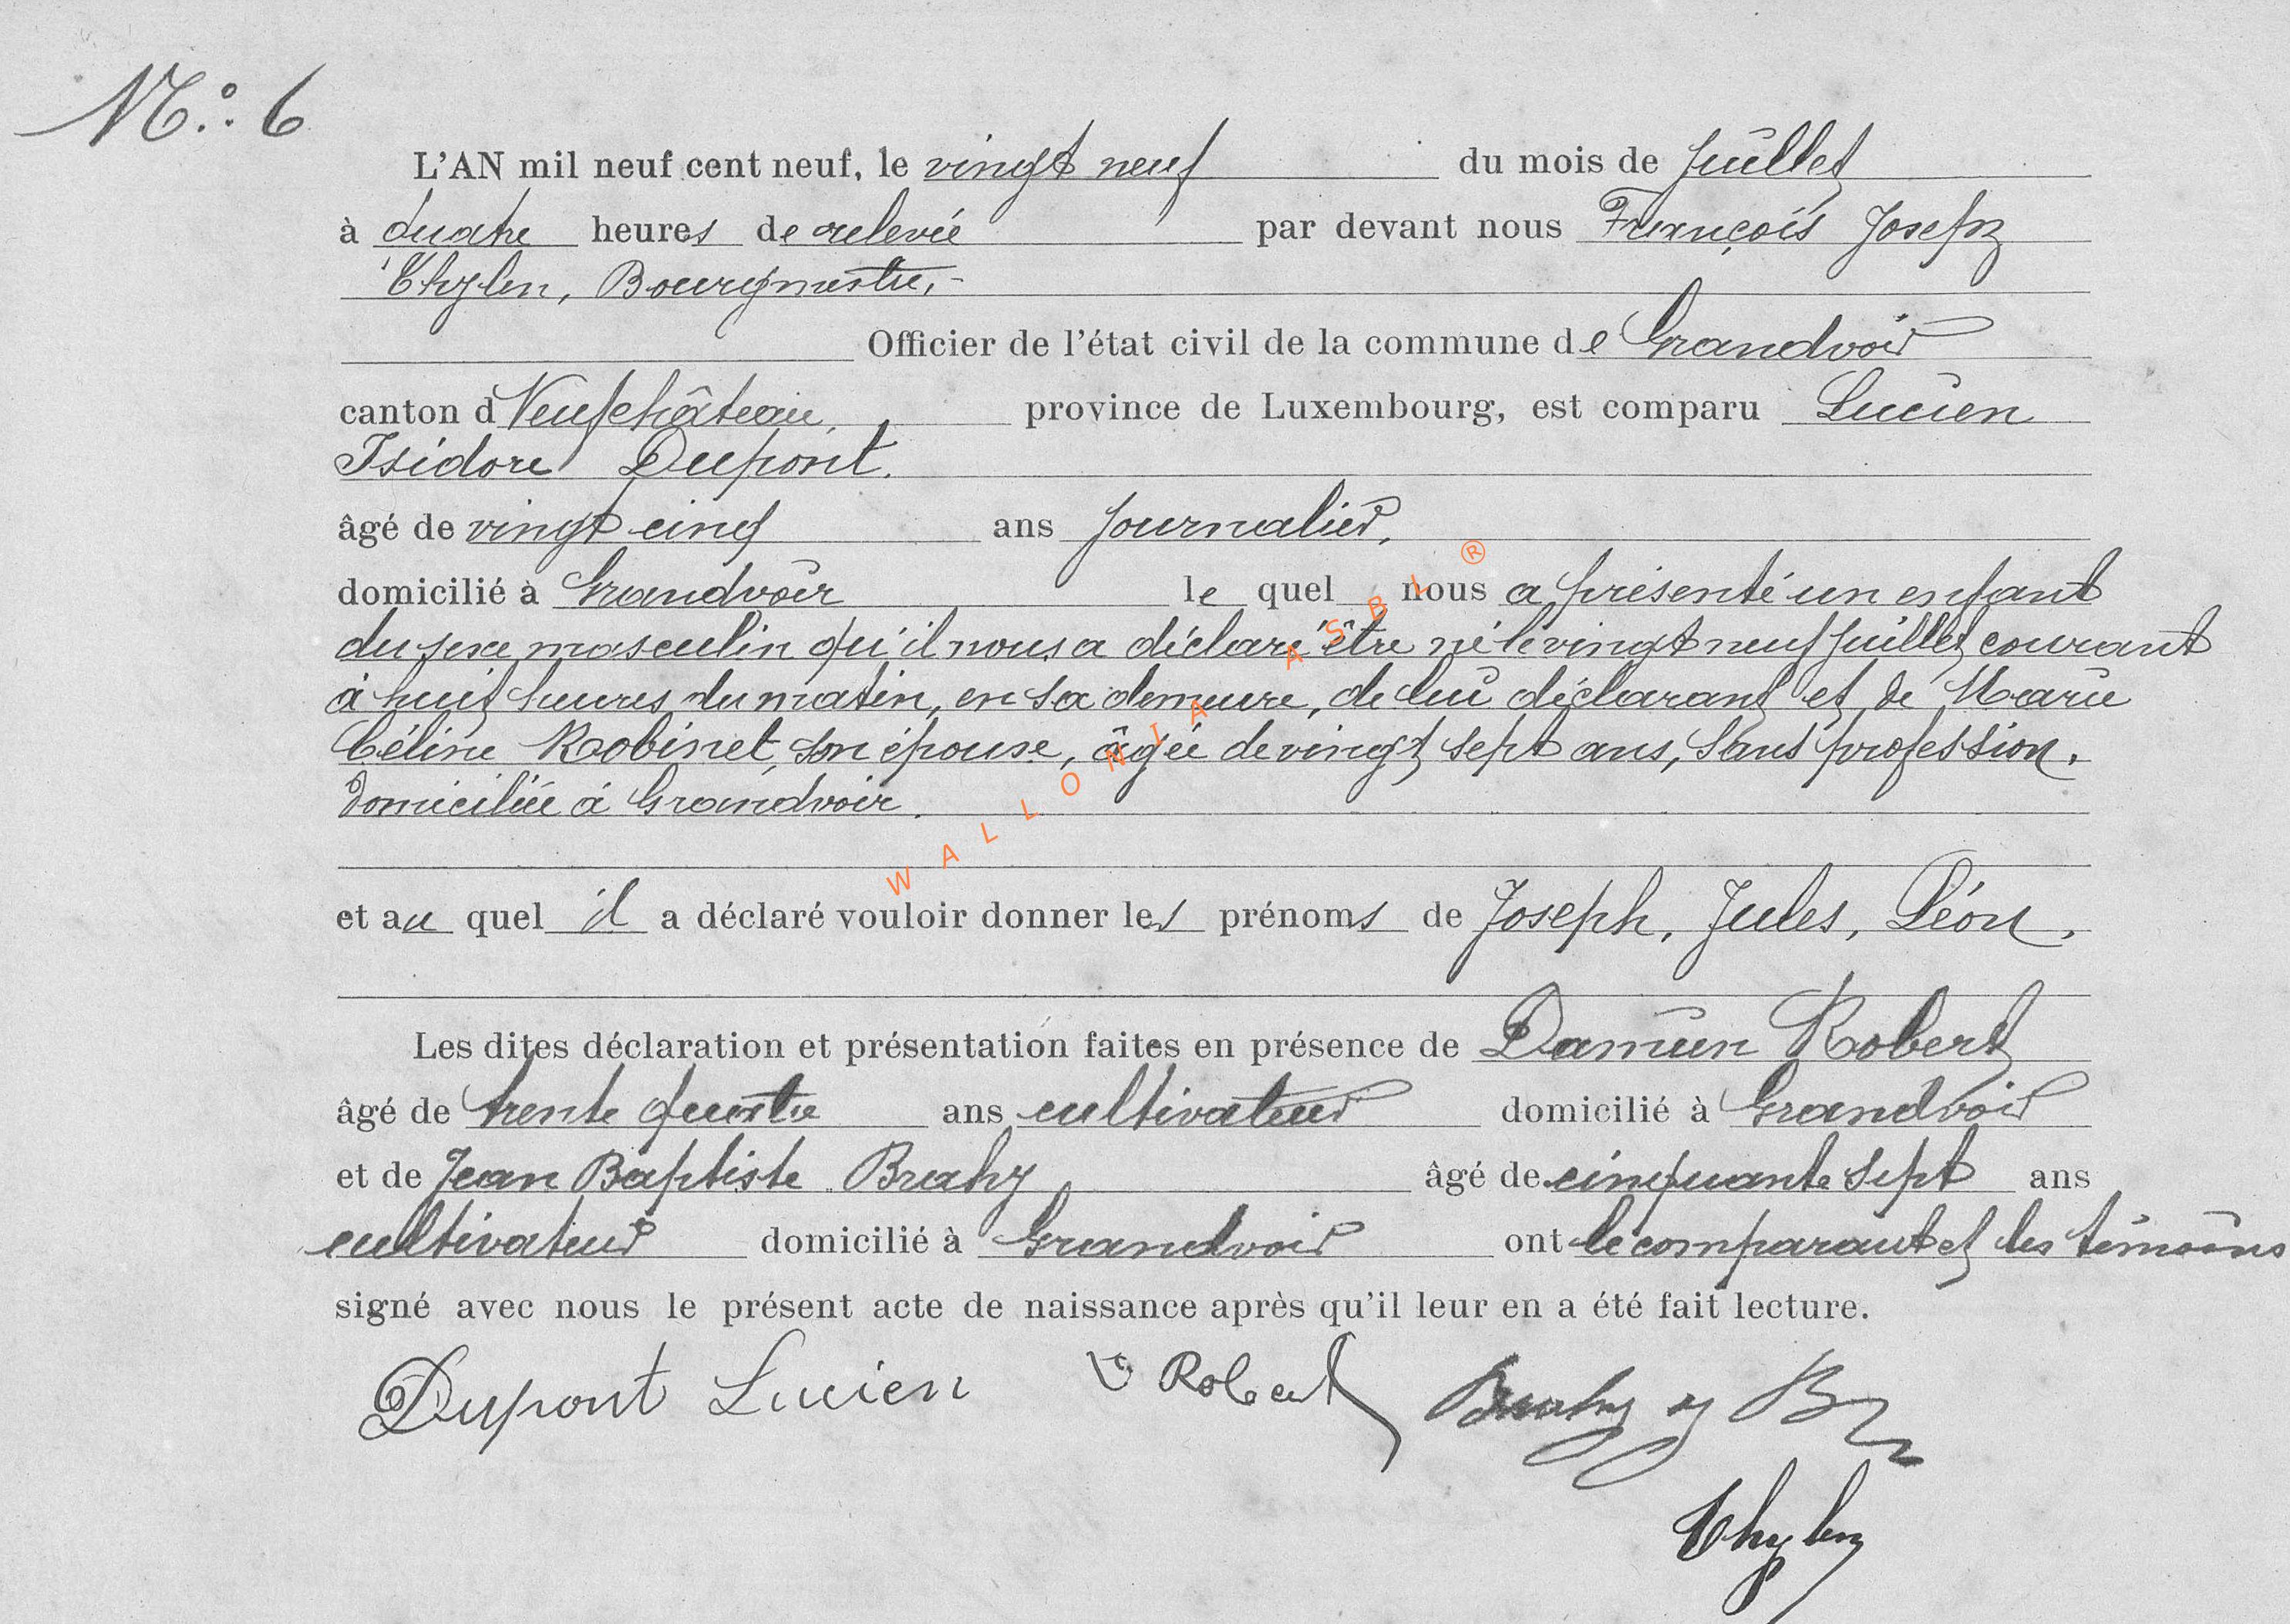 N°: 6
L'AN mil neuf cent neuf, le vingt neuf du mois de Juillet
à quatre heures de relevée par devant nous François Joseph
Thylen, Bourgmestre,
Officier de l'état civil de la commune de Grandvoir
canton d Neufchâteau, province de Luxembourg, est comparu Lucien
Isidore Dupont.
âgé de vingt cinq ans journalier,
domicilié à Grandvoir le quel nous a présenté un enfant
du sexe masculin qu'il nous a déclaré être né le vingt neuf Juillet courant
à huit heures du matin, en sa demeure, de lui déclarant et de Marie
Céline Robinet, son épouse, âgée de vingt sept ans, sans profession.
domiciliée à Grandvoir.
et au quel il a déclaré vouloir donner les prénoms de Joseph, Jules, Léon,
Les dites déclaration et présentation faites en présence de Damien Robert
âgé de trente quatre ans cultivateur domicilié à Grandvoir
et de Jean Baptiste Brahy âgé de cinquante sept ans
cultivateur domicilié à Grandvoir ont le comparant et les témoins
signé avec nous le présent acte de naissance après qu'il leur en a été fait lecture.
Dupont Lucien Robert Brahy J B
Thylen
WALLONIA ASBL ®